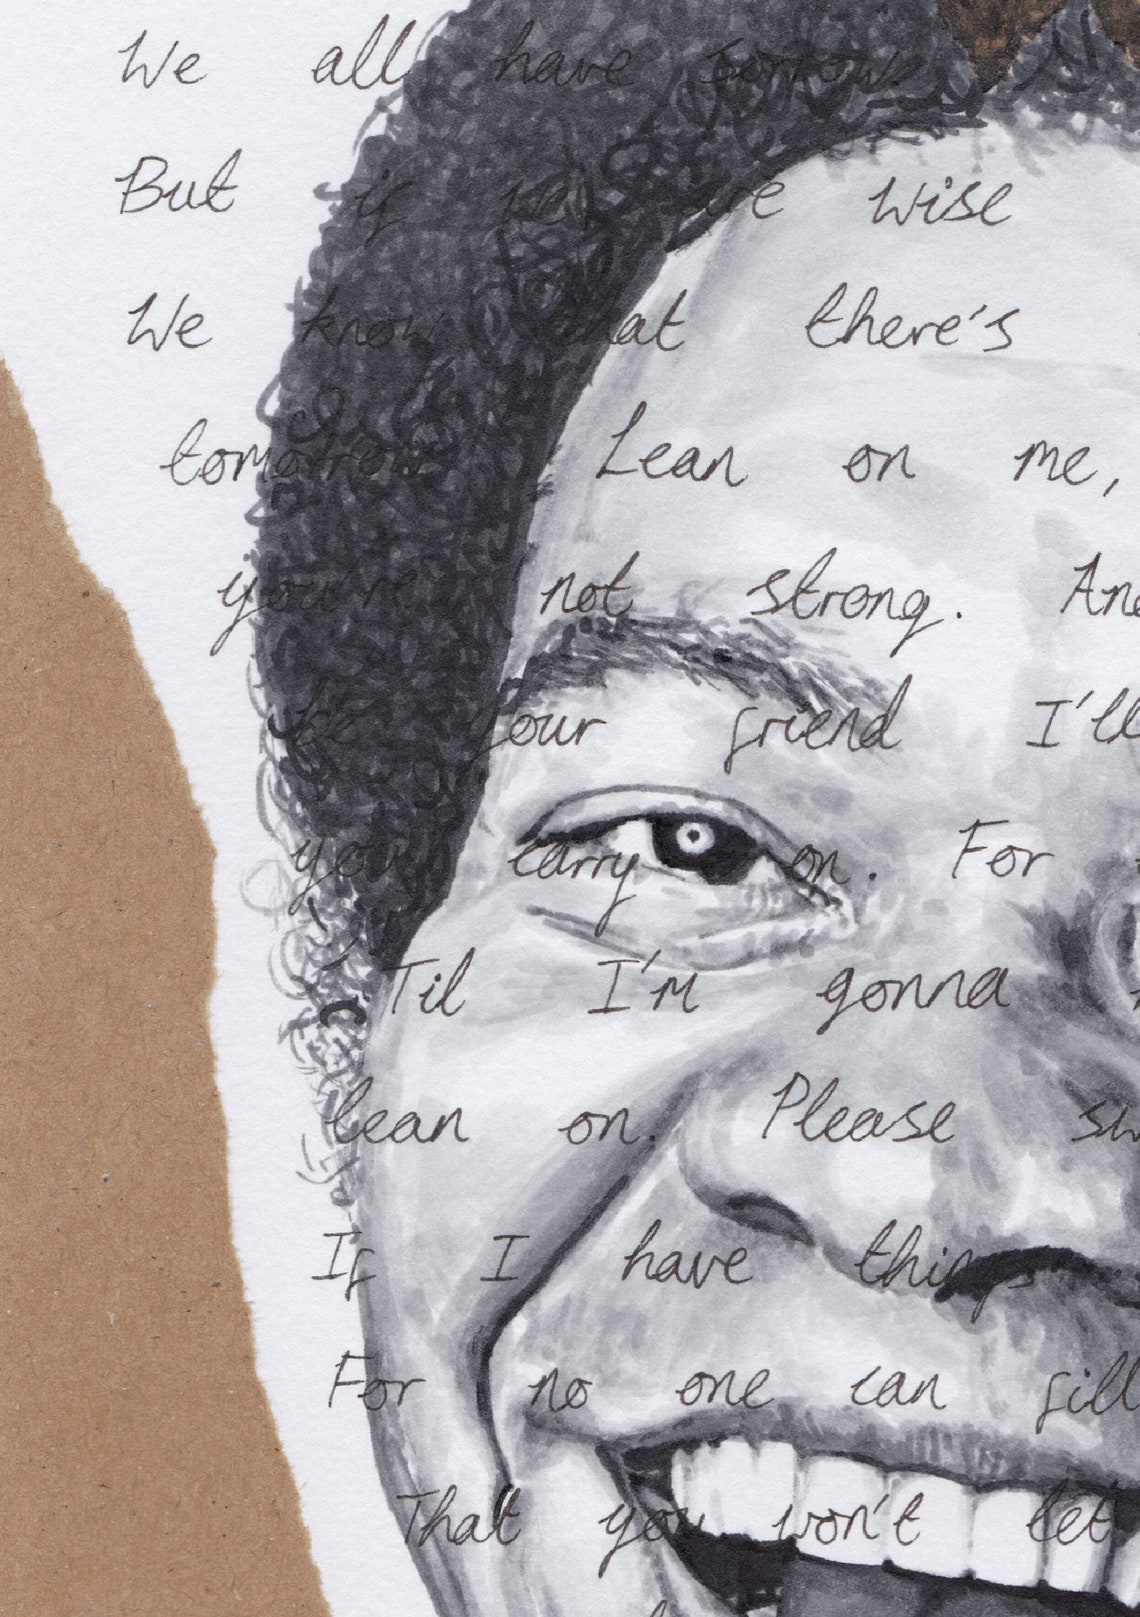 We all have sorrow
But if we are wise
We know that there's
tomorrow Lean on me,
you're not strong. And
be your friend I'll
you carry on. For
Til I'm gonna
lean on. Please
If I have things
For no one can fill
That you won't let